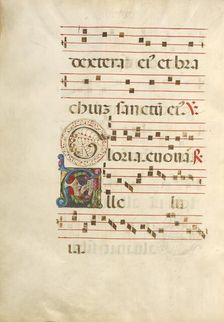 dextera eius et bra
chium sanctum eius V
Gloria. euouae. R
Alle lu
ia.